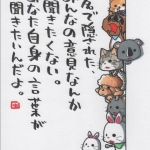 で隠された、
みんなの意見なんか
聞きたくない。
あなた自身の言葉が
聞きたいんだよ。